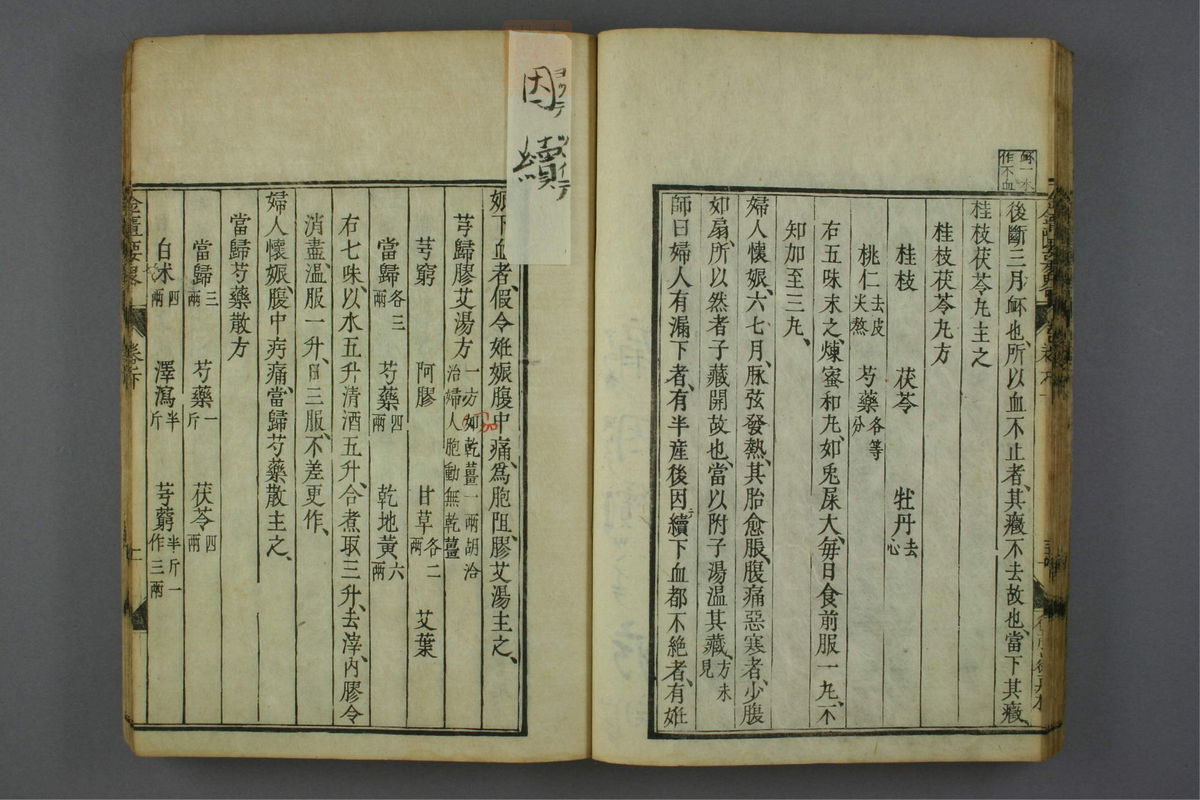 衃一本
作不血
後斷三月衃也、所以血不止者、其癥不去故也、當下其癥、
桂枝茯苓丸主之
桂枝茯苓丸方
桂枝　茯苓　牡丹去心
桃仁去皮尖熬　芍藥各等分
右五味末之、煉蜜和丸、如兎屎大、每日食前服一丸、不
知加至三丸、
婦人懷娠、六七月、脉弦發熱、其胎愈脹、腹痛惡寒者、少腹
如扇、所以然者子藏開故也、當以附子湯溫其藏、方未見
師曰婦人有漏下者、有半産後因續下血都不絶者、有妊
因ヨクテ 續ツイテ
娠下血者、假令妊娠腹中痛、爲胞阻、膠艾湯主之、
芎歸膠艾湯方一方加乾薑一兩胡洽治婦人胞動無乾薑
芎窮　阿膠　甘草各二兩　艾葉
當歸各三兩　芍藥四兩　乾地黃六兩
右七味、以水五升清酒五升、合煮取三升、去滓、內膠令
消盡、溫服一升、日三服、不差更作、
婦人懷娠腹中㽲痛、當歸芍藥散主之、
當歸芍藥散方
當歸三兩　芍藥一斤　茯苓四兩
白朮四兩　澤瀉半斤　芎藭半斤一作三兩
金匱要畧　卷下